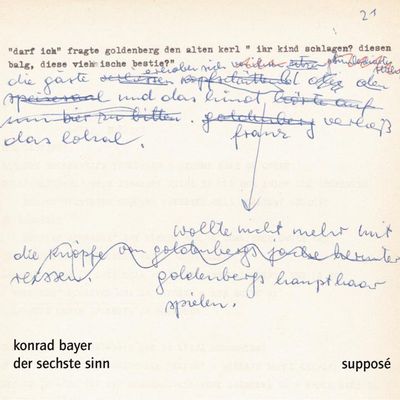 21
"darf ich" fragte goldenberg den alten kerl " ihr kind schlagen? diesen
balg, diese vieh ische bestie?"
die gäste verliessen kopfschüttelnd den
speisesaal und das kind hörte auf
um bier zu bitten. goldenberg verließ
franz
das lokal.
wollte nicht mehr mit
die knöpfe von goldenbergs jacke herunter
reissen. goldenbergs haupthaar
spielen.
konrad bayer
der sechste sinn
supposé